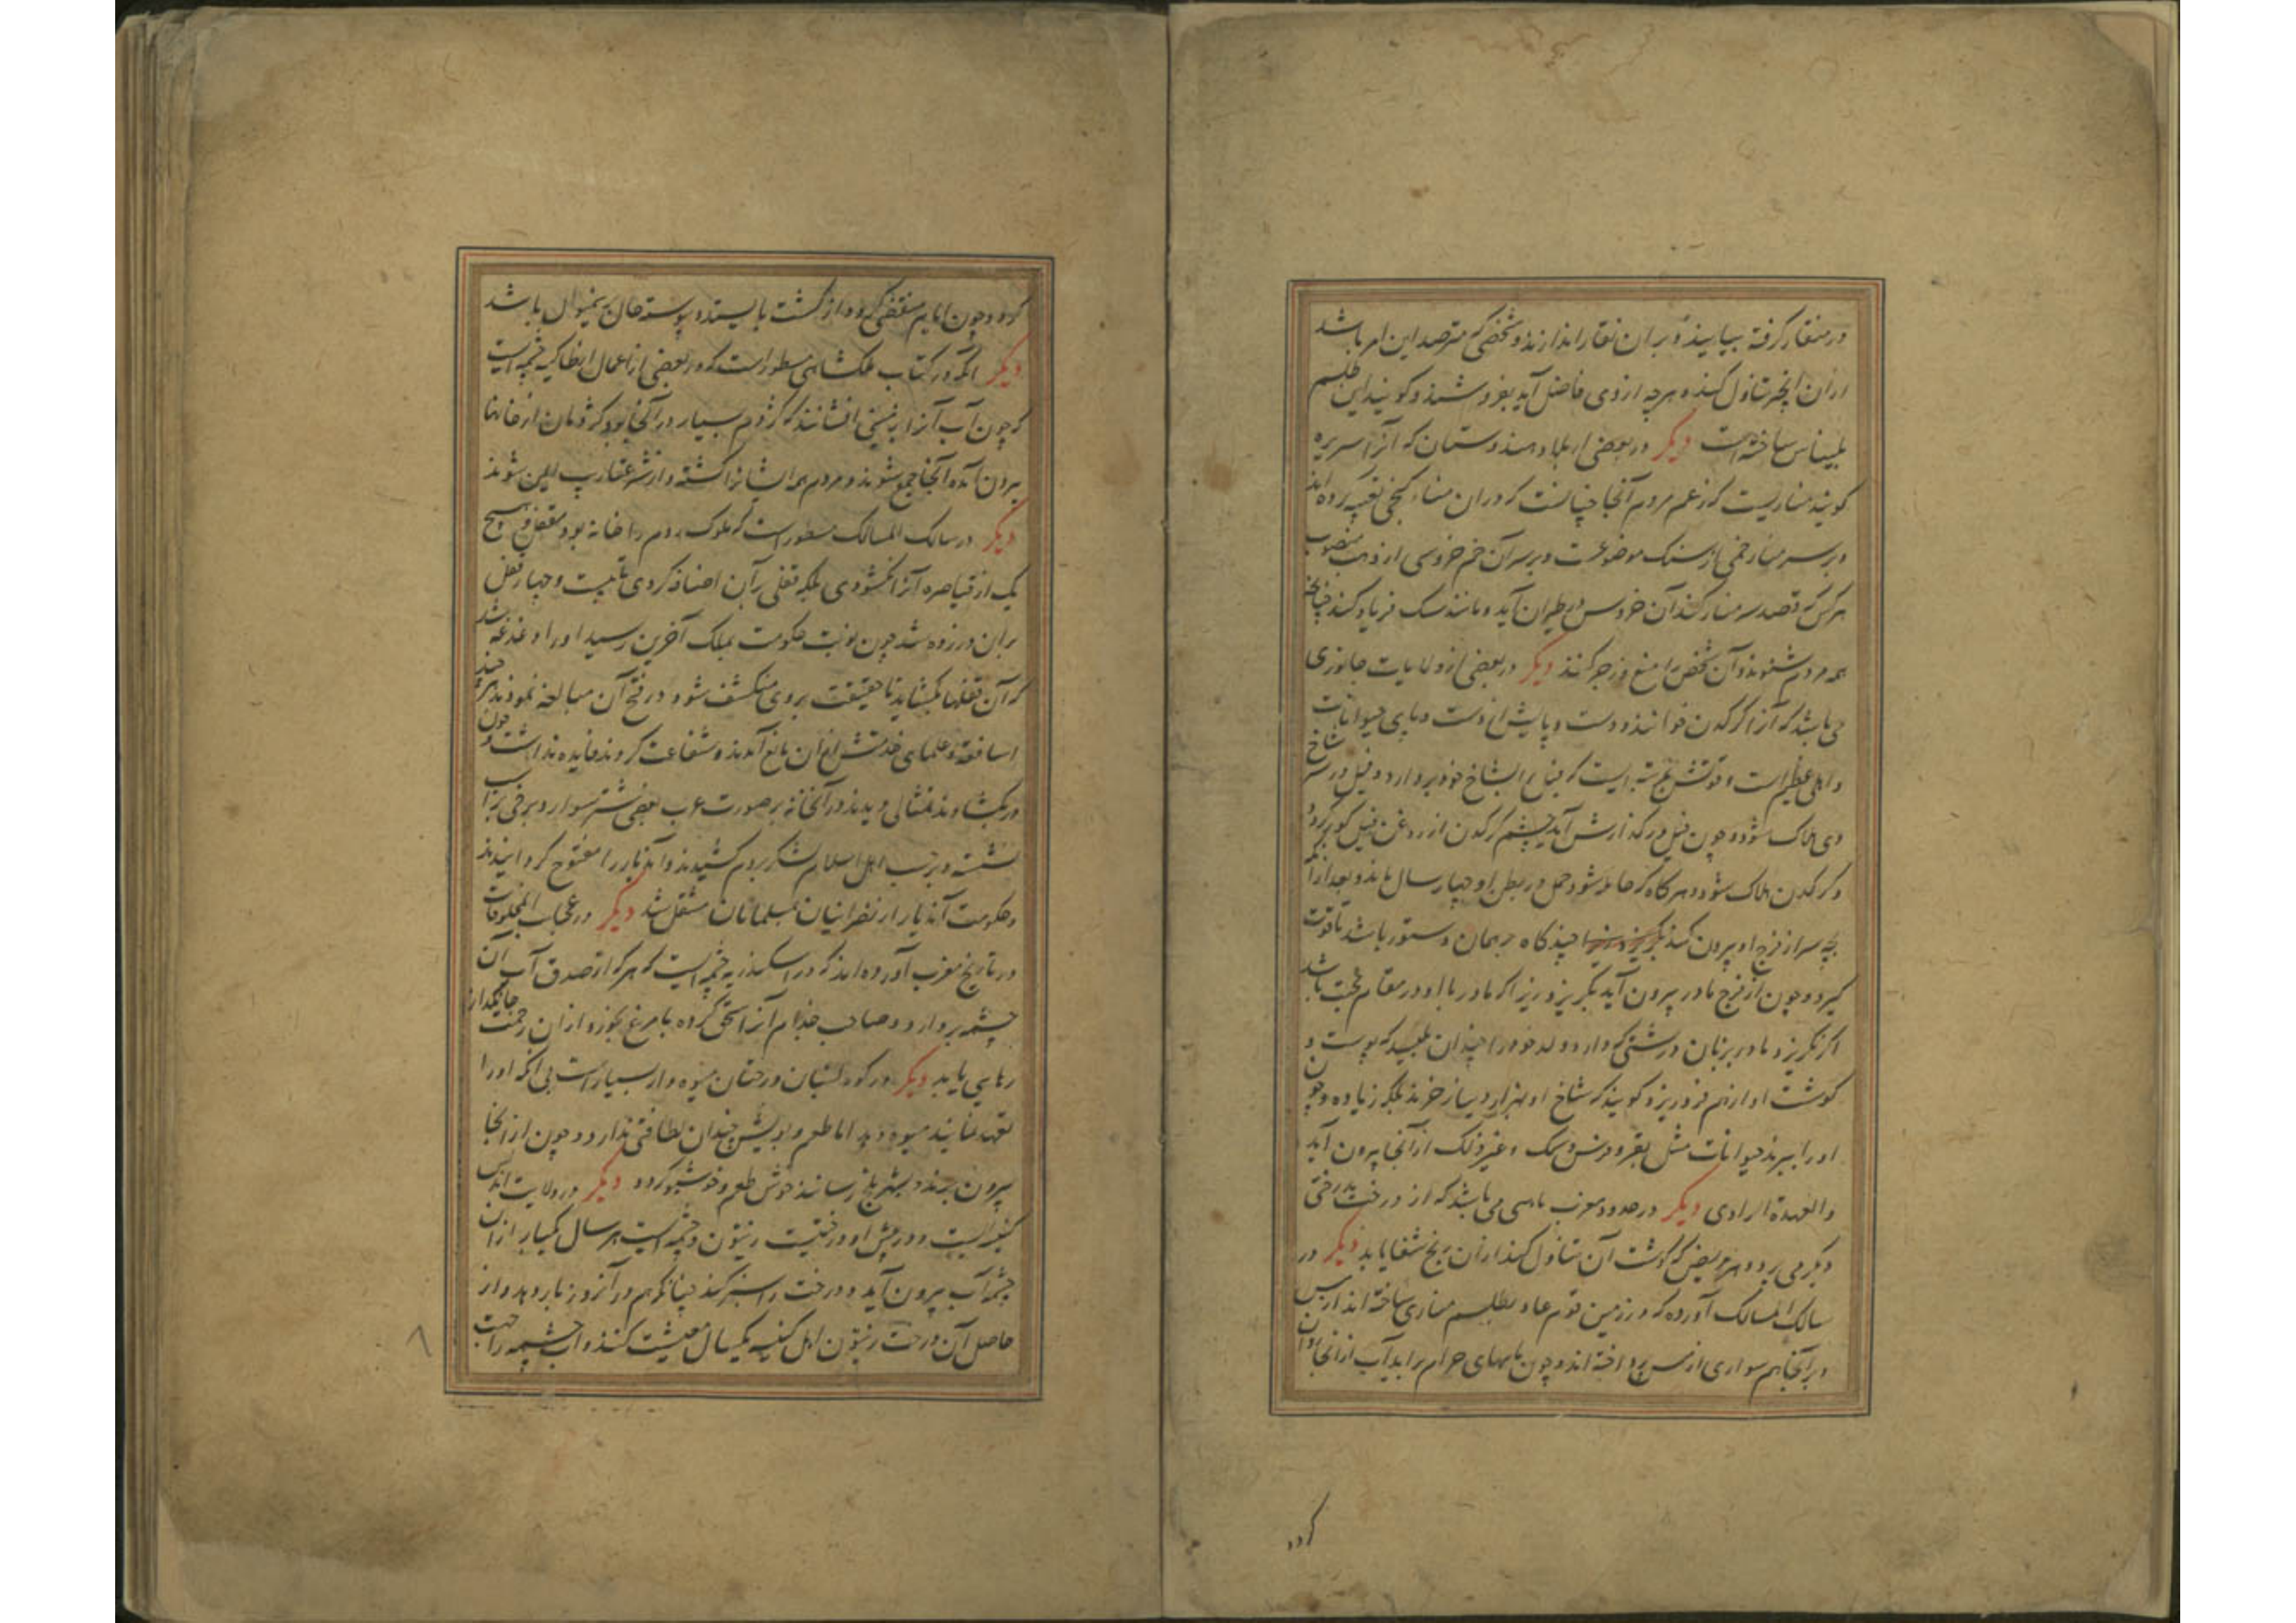 در منقار گرفته بیایند و بران نقار اندازند و شخصی که مترصد این امر باشد
از آن انچه تناول کند و هرچه از وی فاضل آید بفروشند و گویند این طلسم
بلیناس ساخته است دیگر در بعضی از بلاد هندوستان که آنرا سریره
گویند مناریست که زعم مردم آنجا چنانست که در ان مناره گنجی تعبیه کرده اند
و بر سر منار خمی از سنگ موضوعست و بر سر آن خم خروسی از ذهب منصوب
هر کس که قصد سر منار کند آن خروس در طیران آید و مانند سگ فریاد کند چنانچه
همه مردم شنوند و آن شخص را منع و زجر کنند دیگر در بعضی از ولایات جانوری
می باشد که آنرا کرگدن خوانند و دست و پایش دست و پای حیوانات
و اهلی عظیم است و قوتش بمرتبه ایست که فیل را بشاخ خود بردارد و فیل در سر شاخ
وی هلاک شود و چون فیل در گذارش آید چشم کرگدن از روغن فیل کور گردد
و کرگدن هلاک شود و هرگاه که حامله شود حمل در بطن او چهار سال ماند و بعد از آن
بچه سر از فرج او بیرون کند چندگاه بر همان دستور باشد تا قوت
گیرد و چون از فرج مادر بیرون آید بگریزد زیرا که مادر با او در مقام محبت باشد
اگر نگریزد مادر بزبان درشتی که دارد ولد خود را چندان بلیسد که پوست و
گوشت او از هم فرو ریزد و گویند که شاخ او بهزار دینار خرند بلکه زیاده و چون
او را ببرند حیوانات مثل بقر و فرس و سمک و غیر ذلک از آنجا بیرون آید
والعهدة الراوی دیگر در حدود مغرب ماهی می باشد که از درخت بدرختی
دیگر می پرد و هر مریض که گوشت آن تناول کند از آن رنج شفا یابد دیگر در
مسالک الممالک آورده که در زمین قوم عاد بطلسم مناری ساخته اند از مس
و بر آنجا هم سواری از مس پرداخته اند و چون ماههای حرام براید آب از آنجا روان
گردد
گردد و چون ایام منقضی گردد از گشت بایستد و پیوسته حال برینمنوال باشد
دیگر آنکه در کتاب ملکشاهی مسطور است که در بعضی از اعمال انطاکیه چشمه ایست
که چون آب آنرا بر زمینی افشانند که کژدم بسیار در آنجا بود کژدمان از خانها
بیرون آمده آنجا جمع شوند و مردم همه ایشانرا کشته و از شر عقارب ایمن شوند
دیگر در مسالک الممالک مسطور است که ملوک روم را خانه بود مقفل و هیچ
یک از قیاصره آنرا نگشودی بلکه قفلی بر آن اضافه کردی تا بیست و چهار قفل
بران در زده شد چون نوبت حکومت بملک آخرین رسید او را دغدغه شد
که آن قفلها بگشاید تا حقیقت بر وی منکشف شود در فتح آن مبالغه نمودند هر چند
اساقفه و علمای خدمتش از آن مانع آمدند و شفاعت کردند فایده نداشت و چون
در بگشادند تمثالی دیدند در آنخانه بر صورت عرب بعضی شتر سوار و برخی بر اسب
نشسته و بر عقب اهل اسلام لشکر بروم کشیدند و آندیار را مفتوح گردانیدند
و حکومت آندیار از نصرانیان بمسلمانان منتقل شد دیگر در عجایب المخلوقات
و در تاریخ مغرب آورده اند که در اسکندریه چشمه ایست که هر که از صدف آب آن
چشمه بردارد و صاحب جذام آنرا سحق کرده با مرغ بخورد از آن زحمت جانگداز
رهایی یابد دیگر در کوه لبنان درختان میوه دار بسیار است بی آنکه او را
تعهد نمایند میوه دهد اما طعم و بویش چندان لطافتی ندارد و چون از آنجا
بیرون برند و بنهر بلخ رسانند خوش طعم و خوشبو گردد دیگر در ولایت اندلس
کنیسه ایست و در پیش او درختیست زیتون و چشمه ایست هر سال یکبار از ان
چشمه آب بیرون آید و درخت را سبز کند چنانکه هم در آنروز بار دهد و از
حاصل آن درخت زیتون اهل کنیسه یکسال معیشت کنند و آب چشمه را جهت